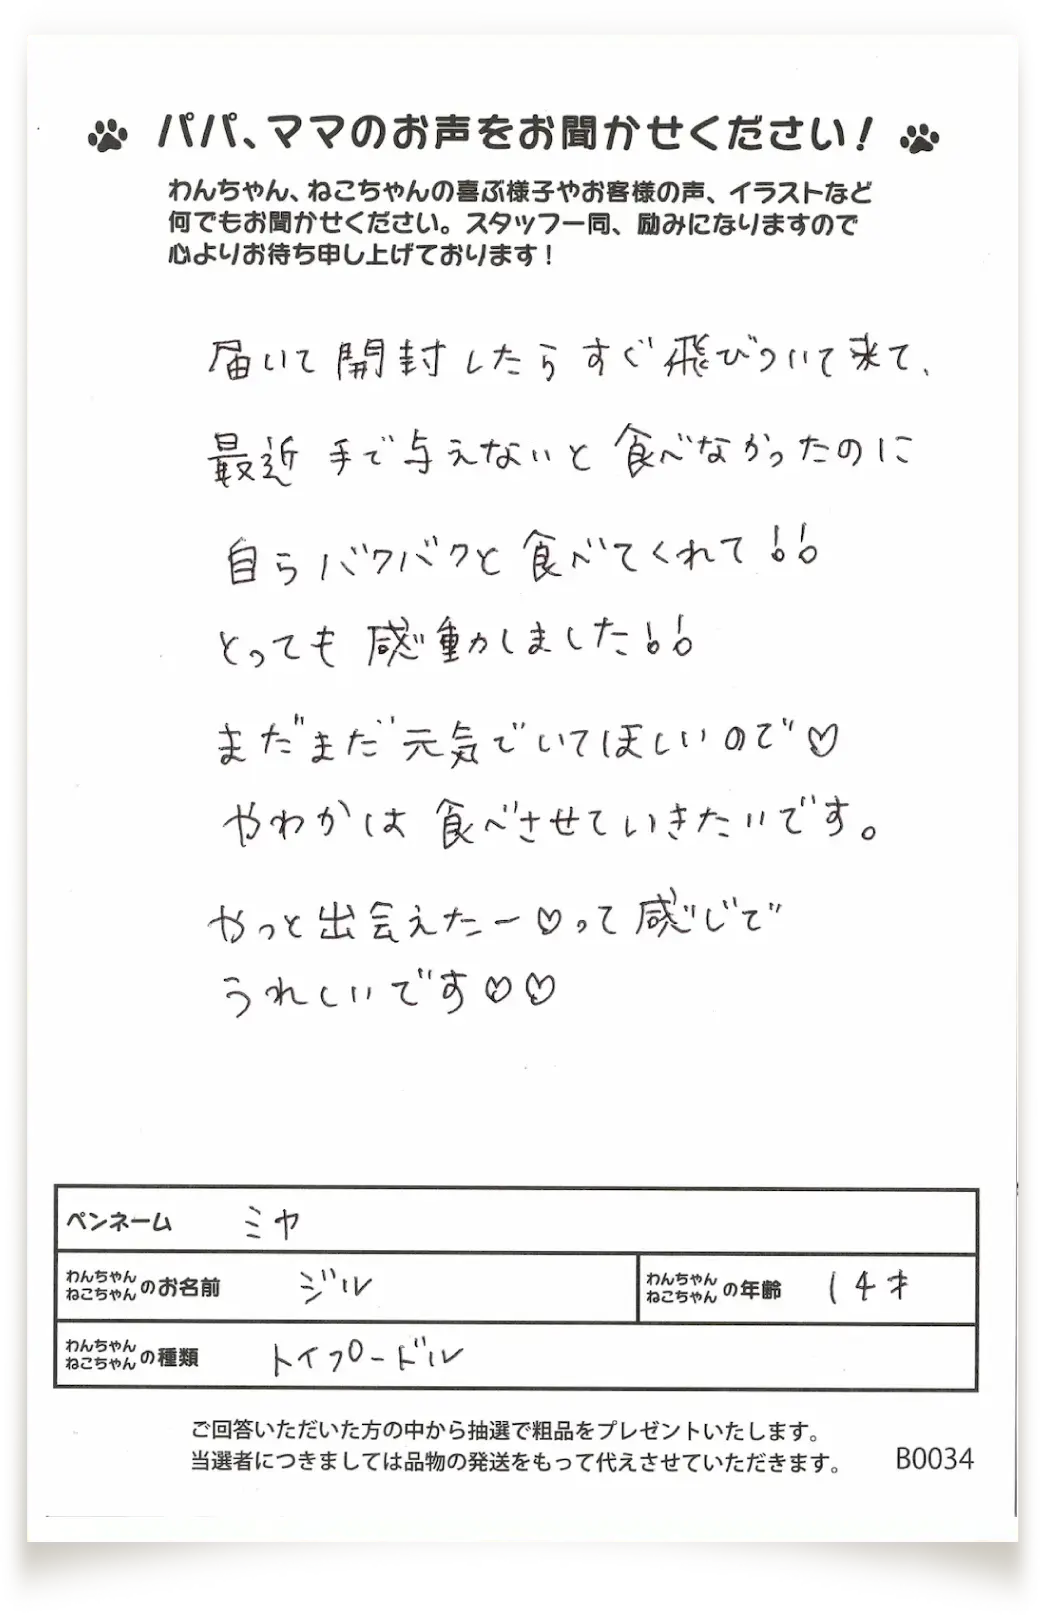 パパ、ママのお声をお聞かせください！
わんちゃん、ねこちゃんの喜ぶ様子やお客様の声、イラストなど
何でもお聞かせください。スタッフ一同、励みになりますので
心よりお待ち申し上げております！
届いて開封したらすぐ飛びついて来て、
最近手で与えないと食べなかったのに
自らバクバクと食べてくれて!!
とっても感動しました!!
まだまだ元気でいてほしいので♡
やわかは食べさせていきたいです。
やっと出会えたー♡って感じで
うれしいです♡♡
ペンネーム ミヤ
わんちゃん ねこちゃん のお名前 ジル
わんちゃん ねこちゃん の年齢 14才
わんちゃん ねこちゃん の種類 トイプードル
ご回答いただいた方の中から抽選で粗品をプレゼントいたします。
当選者につきましては品物の発送をもって代えさせていただきます。 B0034